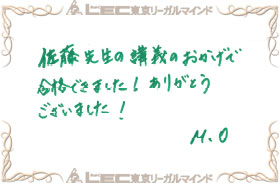 LEC東京リーガルマインド
佐藤先生の講義のおかげで
合格できました！ありがとう
ございました！
M.O
LEC東京リーガルマインド